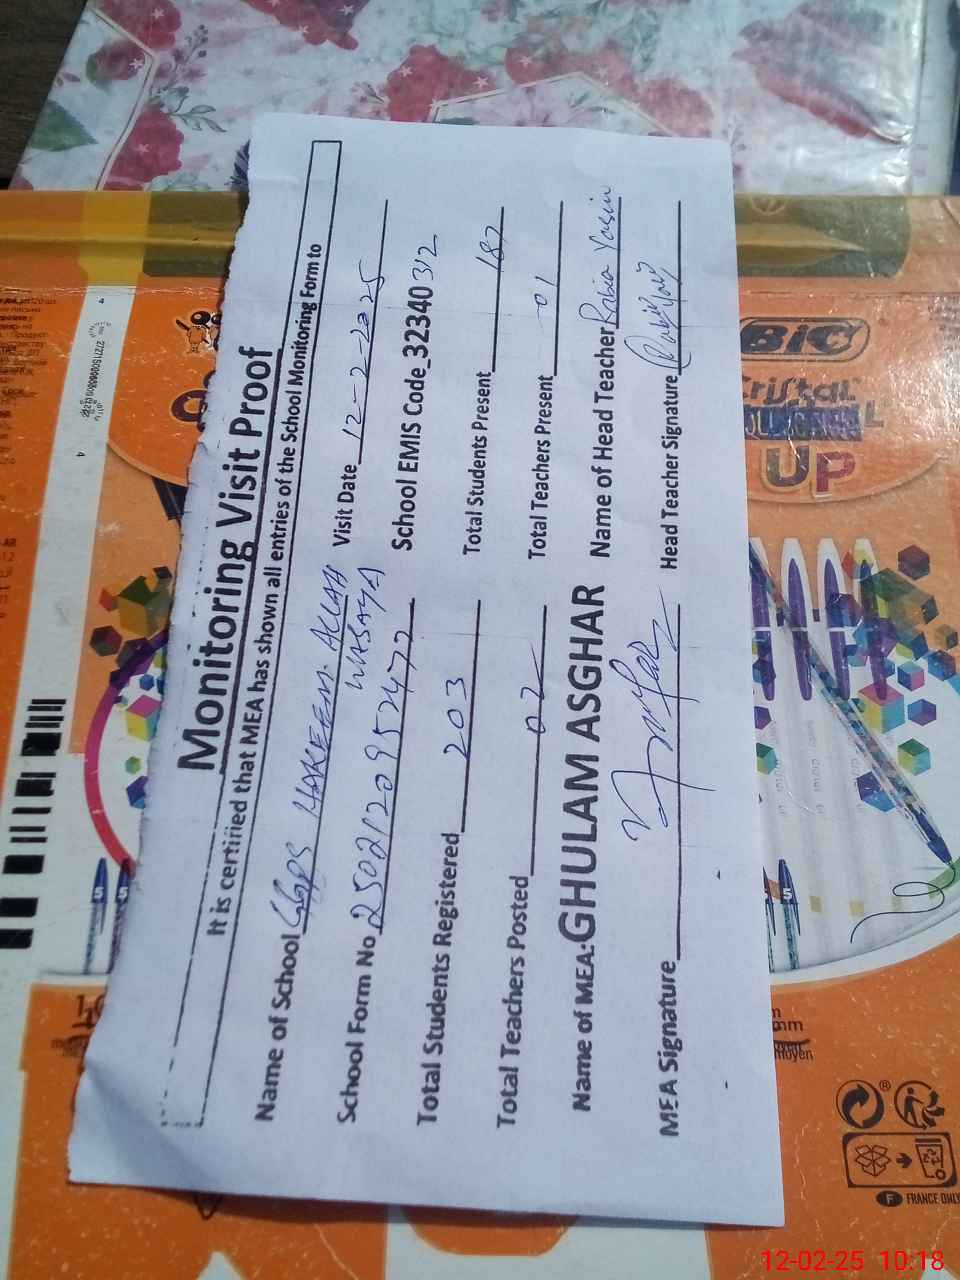 Monitoring Visit Proof
It is certified that MEA has shown all entries of the School Monitoring Form to
Name of School GGPS HAKEEM ALLAH WASAYA Visit Date 12-2-2025
School Form No 25021209524772 School EMIS Code 32340312
Total Students Registered 203 Total Students Present 187
Total Teachers Posted 02 Total Teachers Present 01
Name of MEA: GHULAM ASGHAR Name of Head Teacher Rabia Yasin
MEA Signature Head Teacher Signature
BIC
Cristal
UP
FRANCE ONLY
12-02-25 10:18